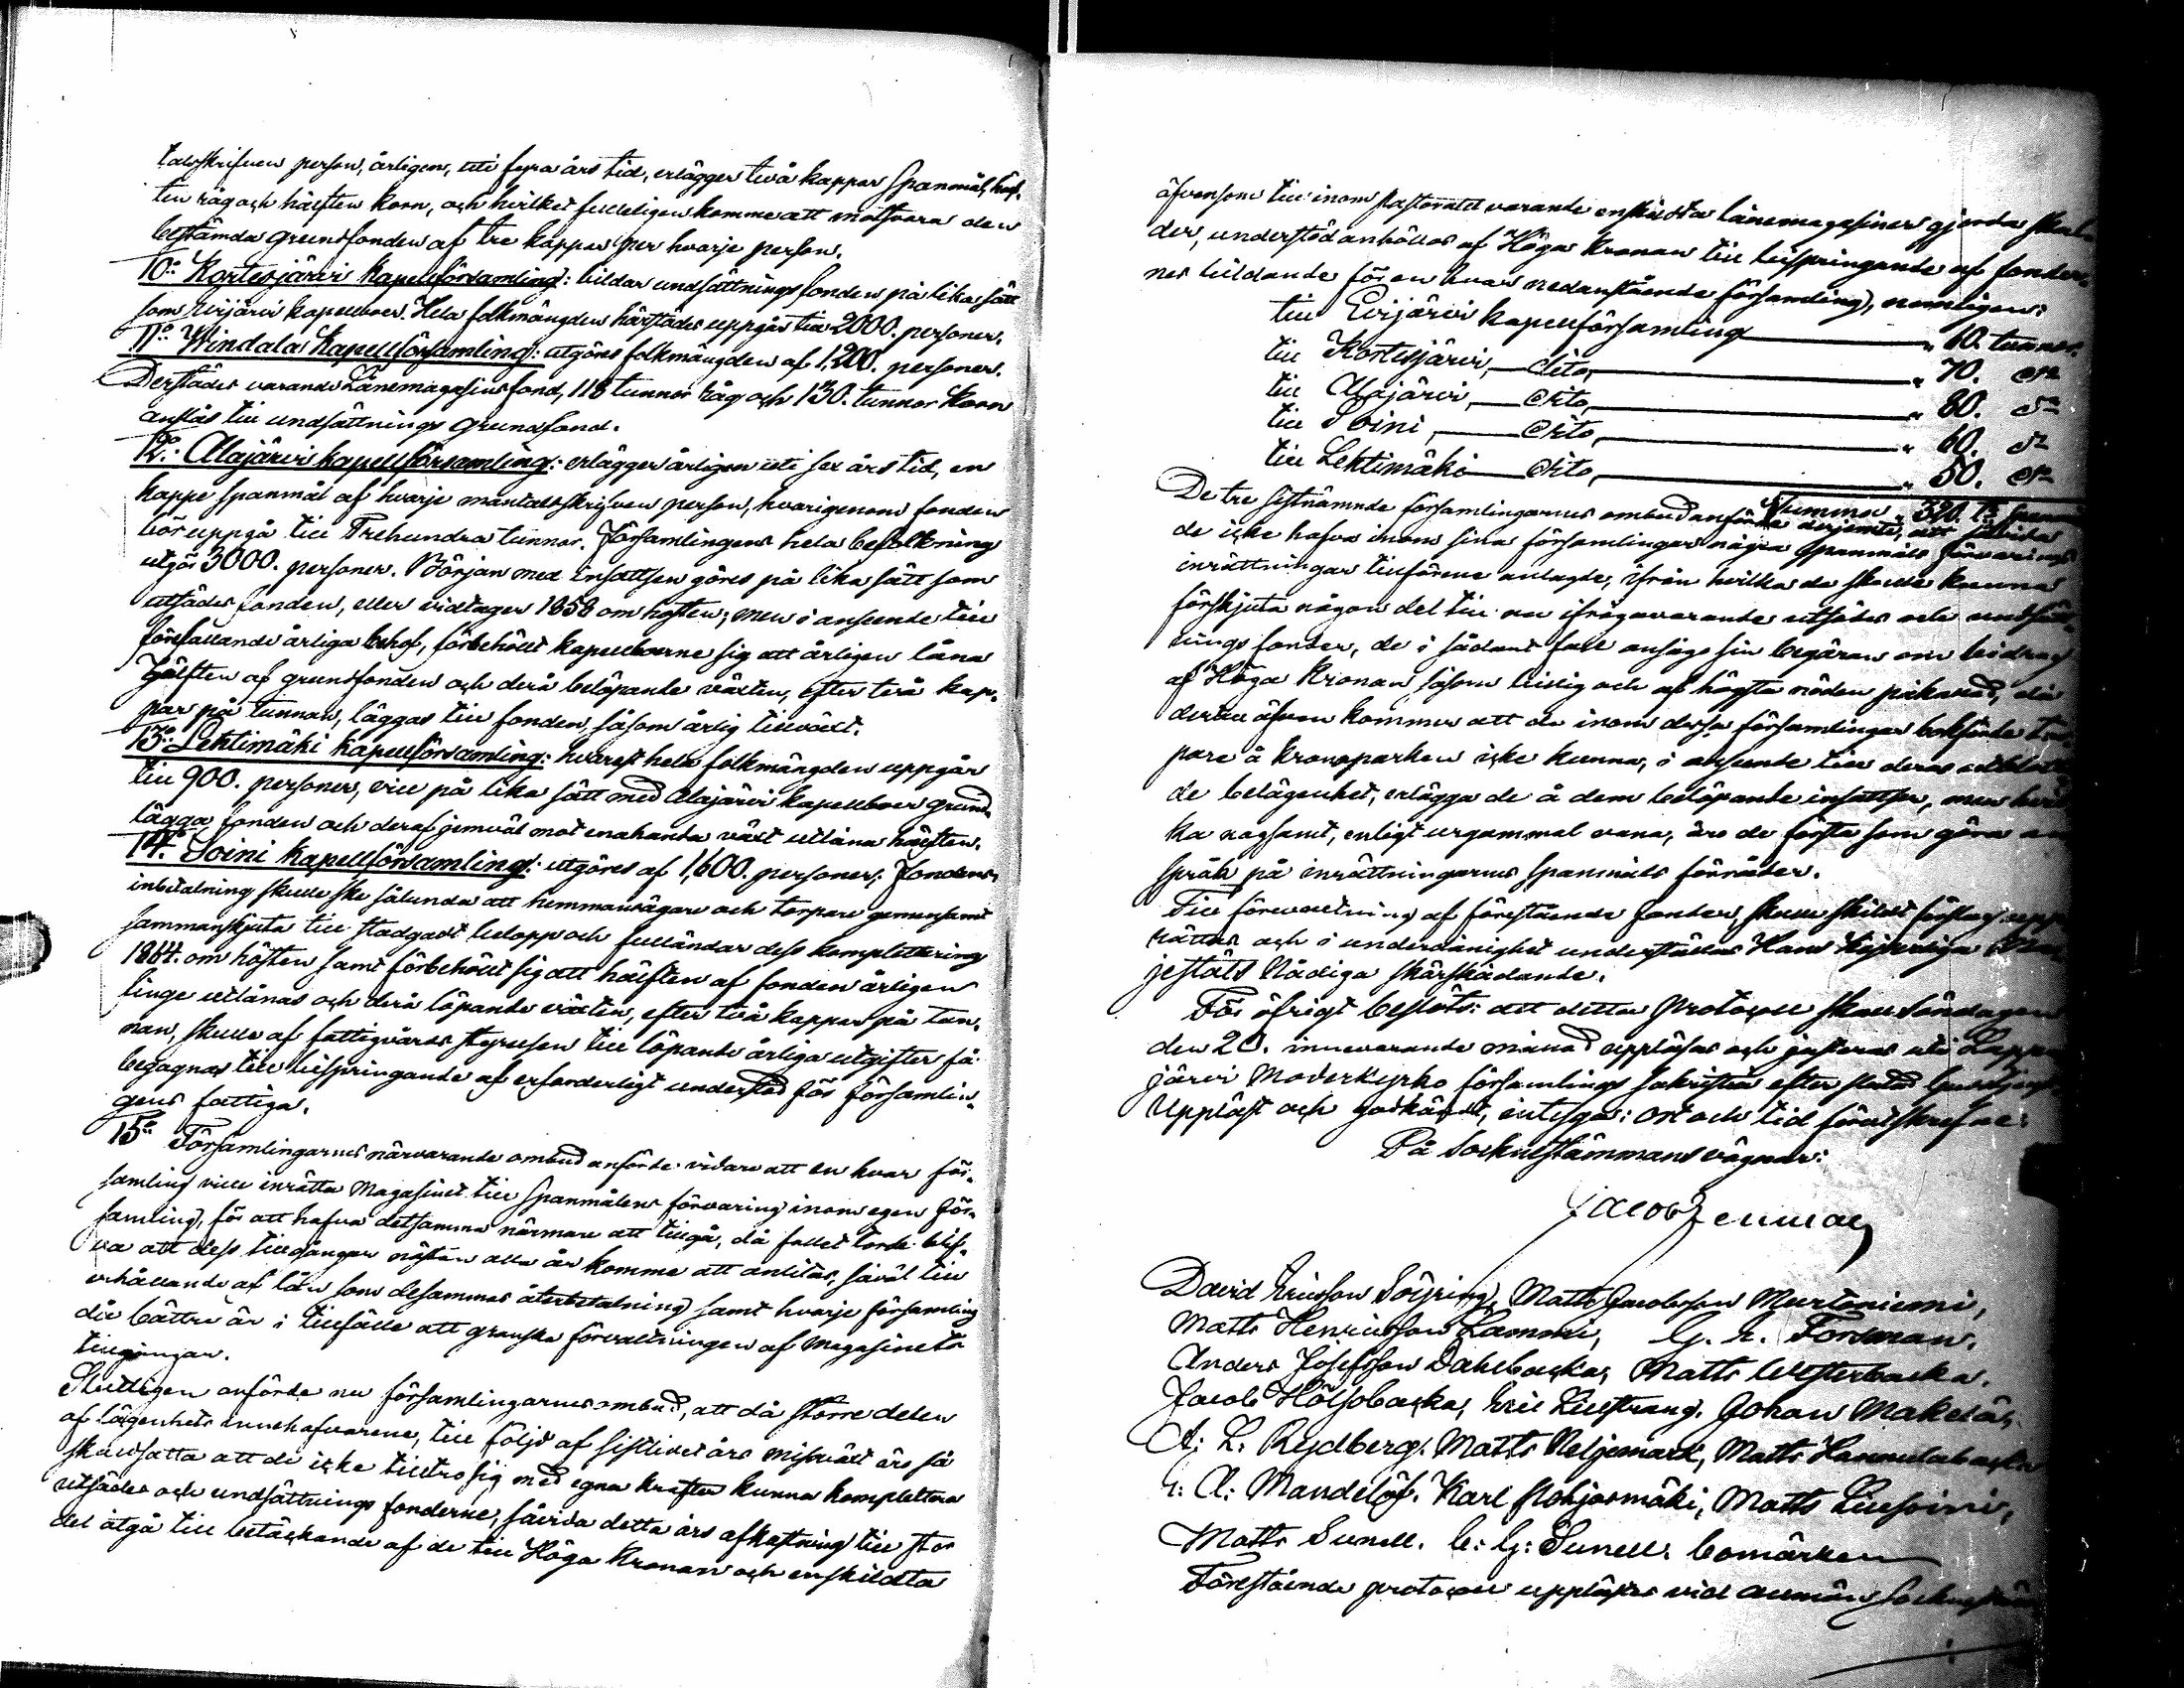 talsskrifven person, årligen, uti fyra års tid, erlägger två kappar Spanmål, hälf-
ten råg och hälften korn, och hvilket fulleligen komme att motsvara den
bestämda grundfonden af tre kappar per hvarje person.
10:o Kortesjärvi Kapellförsamling: bildar undsättningsfonden på lika sätt
som Evijärvi kapellboer. Hela folkmängden härstädes uppgår till 2000. personer.
11:o Windala Kapellförsamling: utgöres folkmängden af 1,200. personer.
Derstädes varande Lånemagasinsfond, 118 tunnor råg och 130. tunnor Korn
anslås till undsättnings grundfond.
12:o Alajärvi kapellförsamling: erlägger årligen uti sex års tid, en
kappe spanmål af hvarje mantalsskrifven person, hvarigenom fonden
bör uppgå till Trehundra tunnor. Församlingens hela befolkning
utgör 3000. personer. Början med insattsen göres på lika sätt som
utsädes fonden, eller vidtager 1858 om hösten; men i anseende till
förefallande årliga behof, förbehöllt kapellboerne sig att årligen låna
Hälften af grundfonden och derå belöpande växten, efter två kap-
par på tunnan, läggas till fonden, såsom årlig tillväxt.
13:o Lehtimäki Kapellförsamling: hvarest hela folkmängden uppgår
till 900. personer, vill på lika sätt med Alajärvi kapellboer grund-
lägga fonden och deraf jemväl mot enahanda växt utlåna hälften.
14:o Soini Kapellförsamling: utgöres af 1,600. personer; fondens
inbetalning skulle ske sålunda att hemmansägare och torpare gemensamt
sammanskjuta till stadgadt belopp och fulländar dess komplettering
1864. om hösten samt förbehöllt sig att hälften af fonden årligen
finge utlånas och derå löpande växten, efter två kappar på tun-
nan, skulle af fattigvårds styrelsen till löpande årliga utgifter få
begagnas till bispringande af erforderligt understöd för församlin-
gens fattiga.
15:o Församlingarnes närvarande ombud anförde vidare att en hvar för-
samling ville inrätta Magasinet till spanmålens förvaring inom egen för-
samling, för att hafva detsamma närmare att tillgå, då fallet torde blif-
va att dess tillgångar nästan alla år komme att anlitas, såväl till
erhållande af lån som desammas återbetalning samt hvarje församling
då bättre är i tillfälle att granska förvaltningen af magasinets
tillgångar.
Slutligen anförde nu församlingarnes ombud, att då större delen
af lägenhets innehafvarene, till följd af sistlidet års missväxt äro så
skuldsatta att de icke tilltro sig med egna krafter kunna komplettera
utsädes och undsättnings fonderne, såvida detta års afkastning till stor
del åtgå till betäckande af de till Höga Kronan och enskildta
äfvensom till inom Pastoratet varande enskildta lånemagasiner gjorda skul-
der, understöd anhölles af Höga Kronan till bispringande af fonder-
nes bildande för en hvar nedanstående församling, nemligen:
till Evijärvi kapellförsamling „ 60. tunnor.
till Kortesjärvi, dito, „ 70. do
till Alajärvi, dito, „ 80. do
till Soini, dito, „ 60. do
till Lehtimäki dito, „ 50. do
Summa „ 320. T:r
De tre sistnämnde församlingarnes ombud anförde derjemte, att såvida
de icke hafva inom sina församlingar några spanmåls förvarings
inrättningar tillförene anlagde, ifrån hvilka de skulle kunna
förskjuta någon del till nu ifrågavarande utsädes och undsätt-
nings fonder, de i sådant fall ansågo sin begäran om bidrag
af Höga Kronan såsom billig och af högsta nöden påkallad, då
dertill äfven kommer att de inom dessa församlingar bosatta tor-
pare å kronoparken icke kunna, i anseende till deras utblottade
belägenhet, erlägga de å dem belöpande insattser, men hvil-
ka nogsamt, enligt urgammal vana, äro de första som göra an
språk på inrättningarnes spanmåls förråder.
Till förevaltning af förestående fonder, skulle skildt förslag upp
rättas och i underdånighet underställas Hans Kejserliga Ma
jestäts Nådiga skärskådande.
För öfrigt beslöts: att detta Protocoll skall Söndagen
den 20. innevarande månad uppläsas och justeras uti Lappa
järvi Moderkyrko församlings sakristia efter slutad Gudstjenst
Uppläst och godkändt, intyga: ort och tid förut skrefne:
På Sockenstämmans vägnar:
Jacob Fenman
David Ericsson Söyring, Matts Jacobsson Murtoniemi,
Matts Henricsson Lammi, G. E. Forsman.
Anders Josefsson Dahlbacka, Matts Westerbacka.
Jacob Hölsobacka, Eric Lillstrang. Johan Makelä,
A: L: Rydberg. Matts Neljemark, Matts Hannulabacka
G: A: Mandelöf. Karl Pohjasmäki, Matts Liusoini,
Matts Sunell. C: G: Sunell. bomärken
Förestående protocoll upplästes vid allmän Sockenstäm